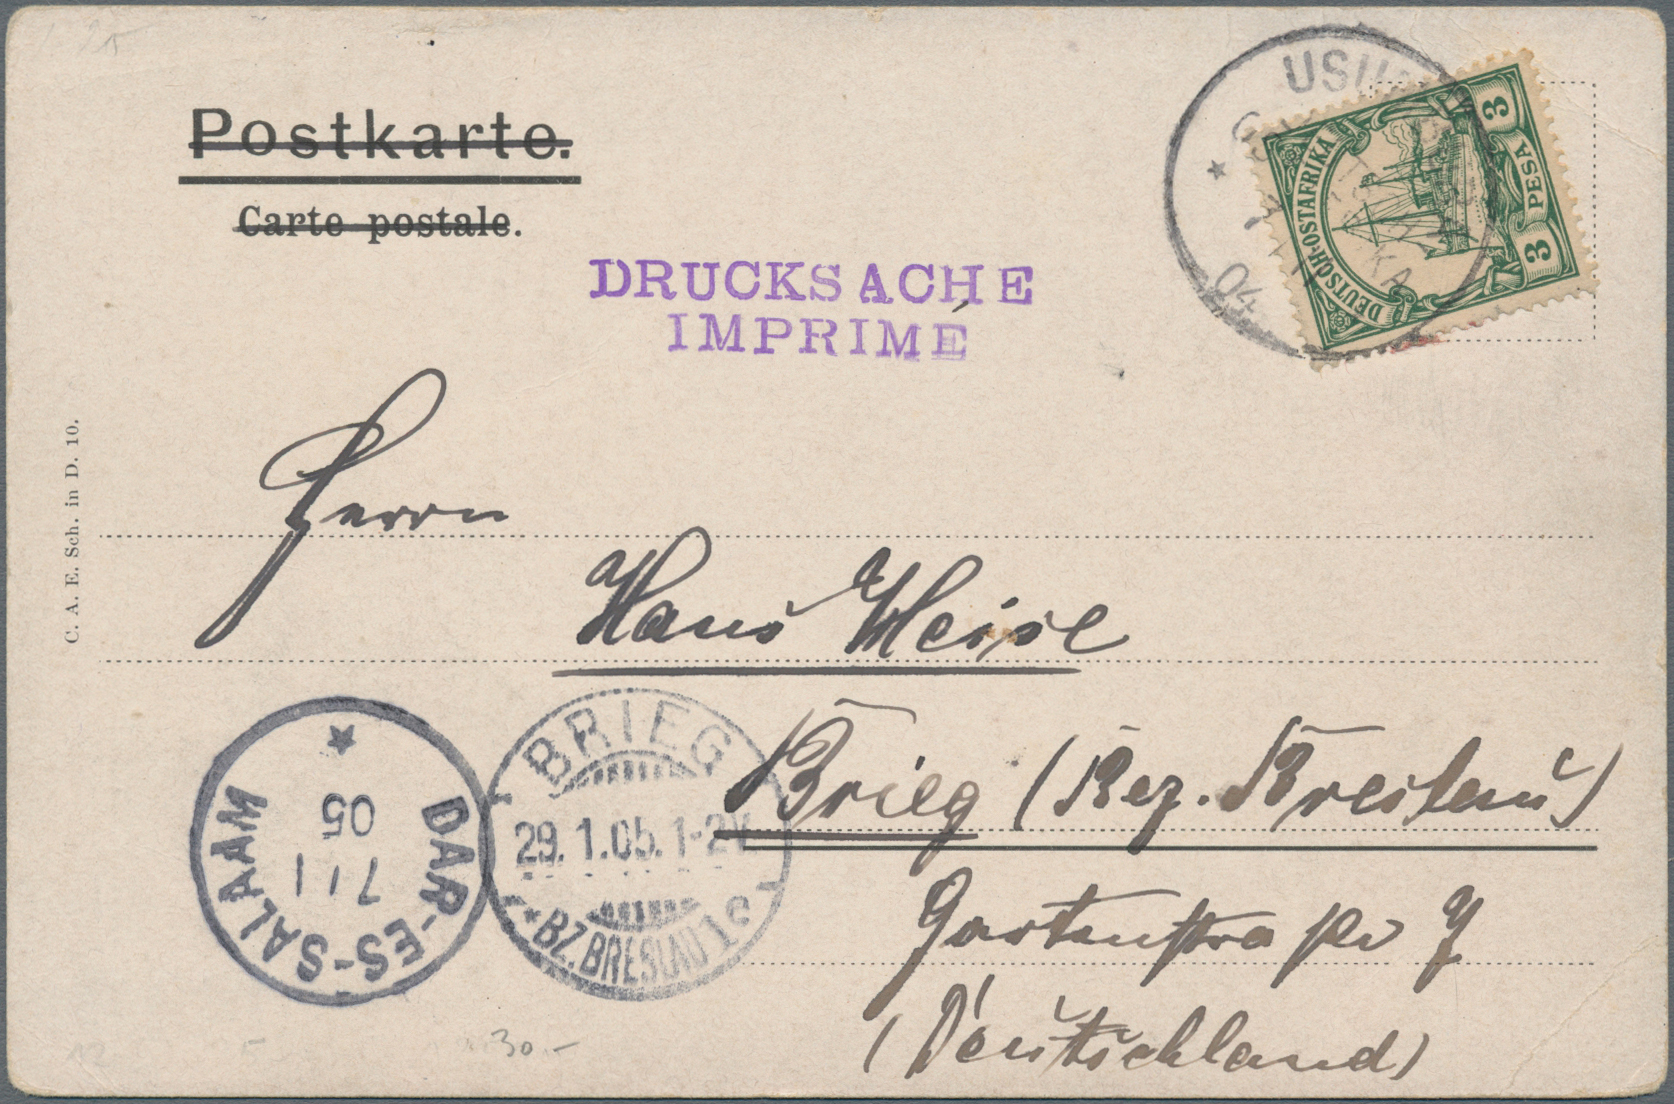 Postkarte.
Carte postale.
DRUCKSACHE
IMPRIMÉ
3 PESA 3
DEUTSCH-OSTAFRIKA
04
C. A. E. Sch. in D. 10.
Herrn
Hans Weise
Brieg (Bez. Breslau)
Gartenstraße
(Deutschland)
DAR-ES-SALAAM
7 1
05
BRIEG
29.1.05.1-2V.
* BZ. BRESLAU 1c
30.-